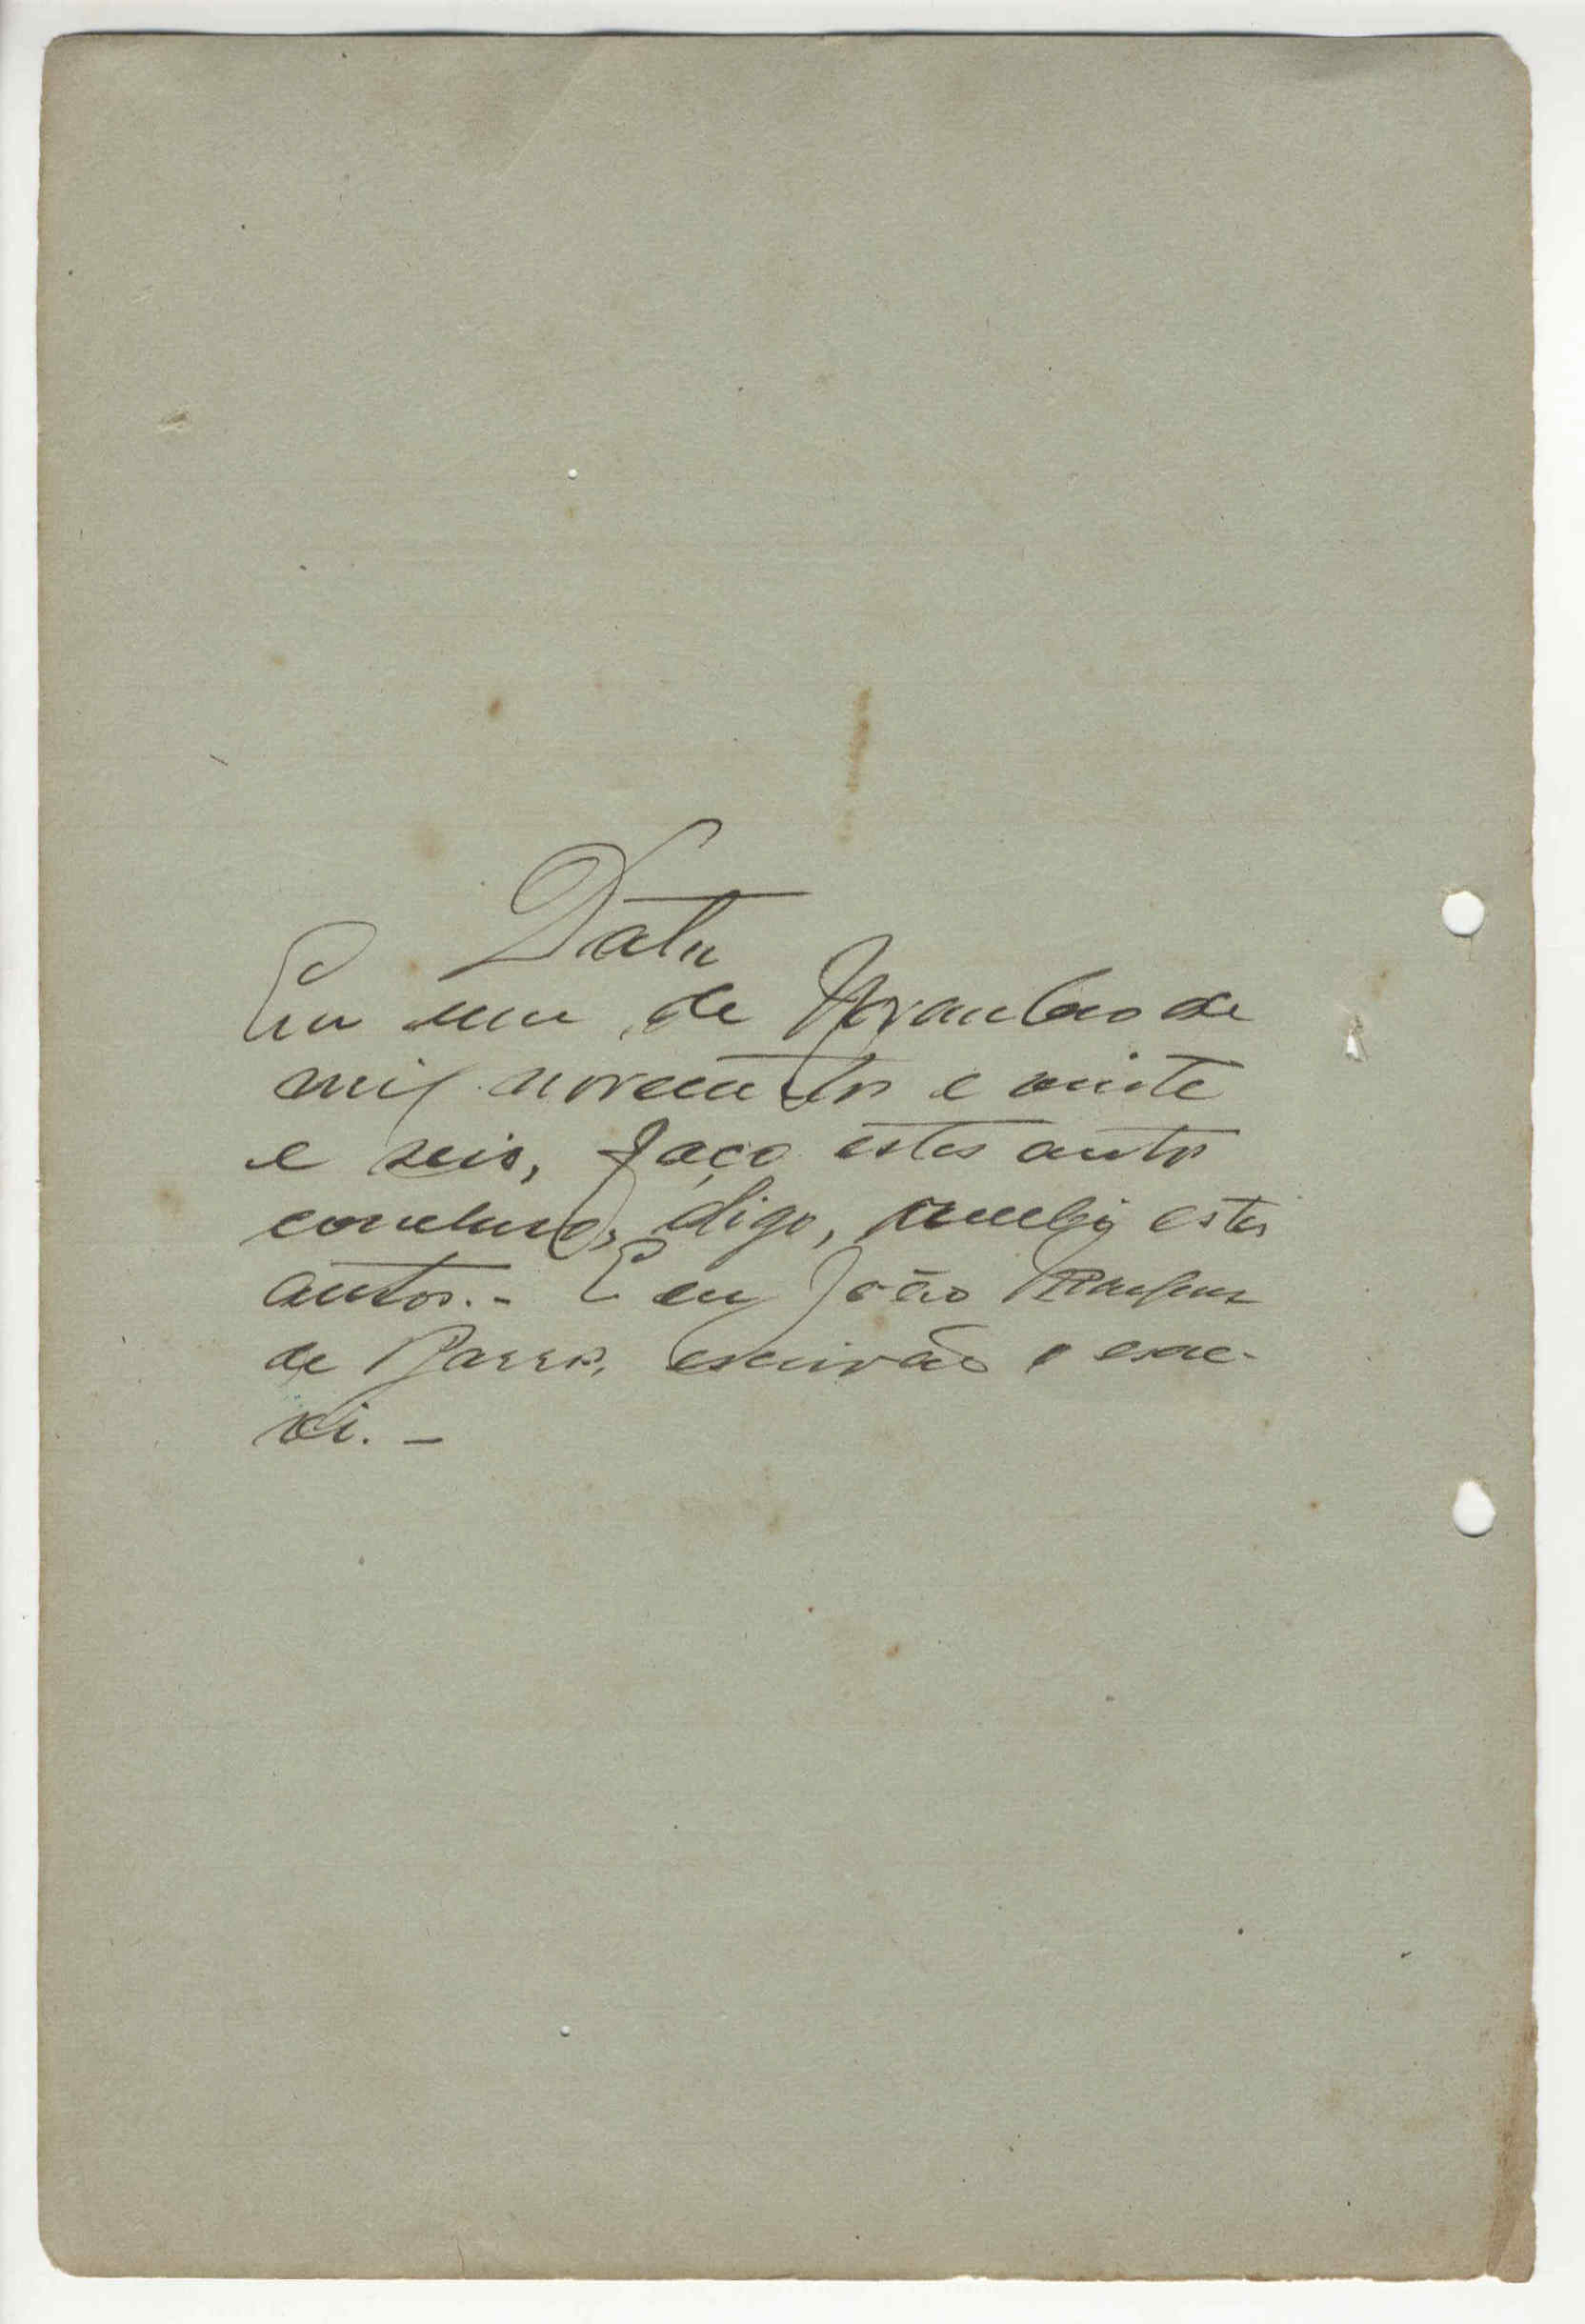 Data
Em um de Novembro de
mil novecentos e vinte
e seis, faço estes autos
conclusos, digo, recebi estes
autos.- E eu João
de Barros, escrivão o escre-
vi. -